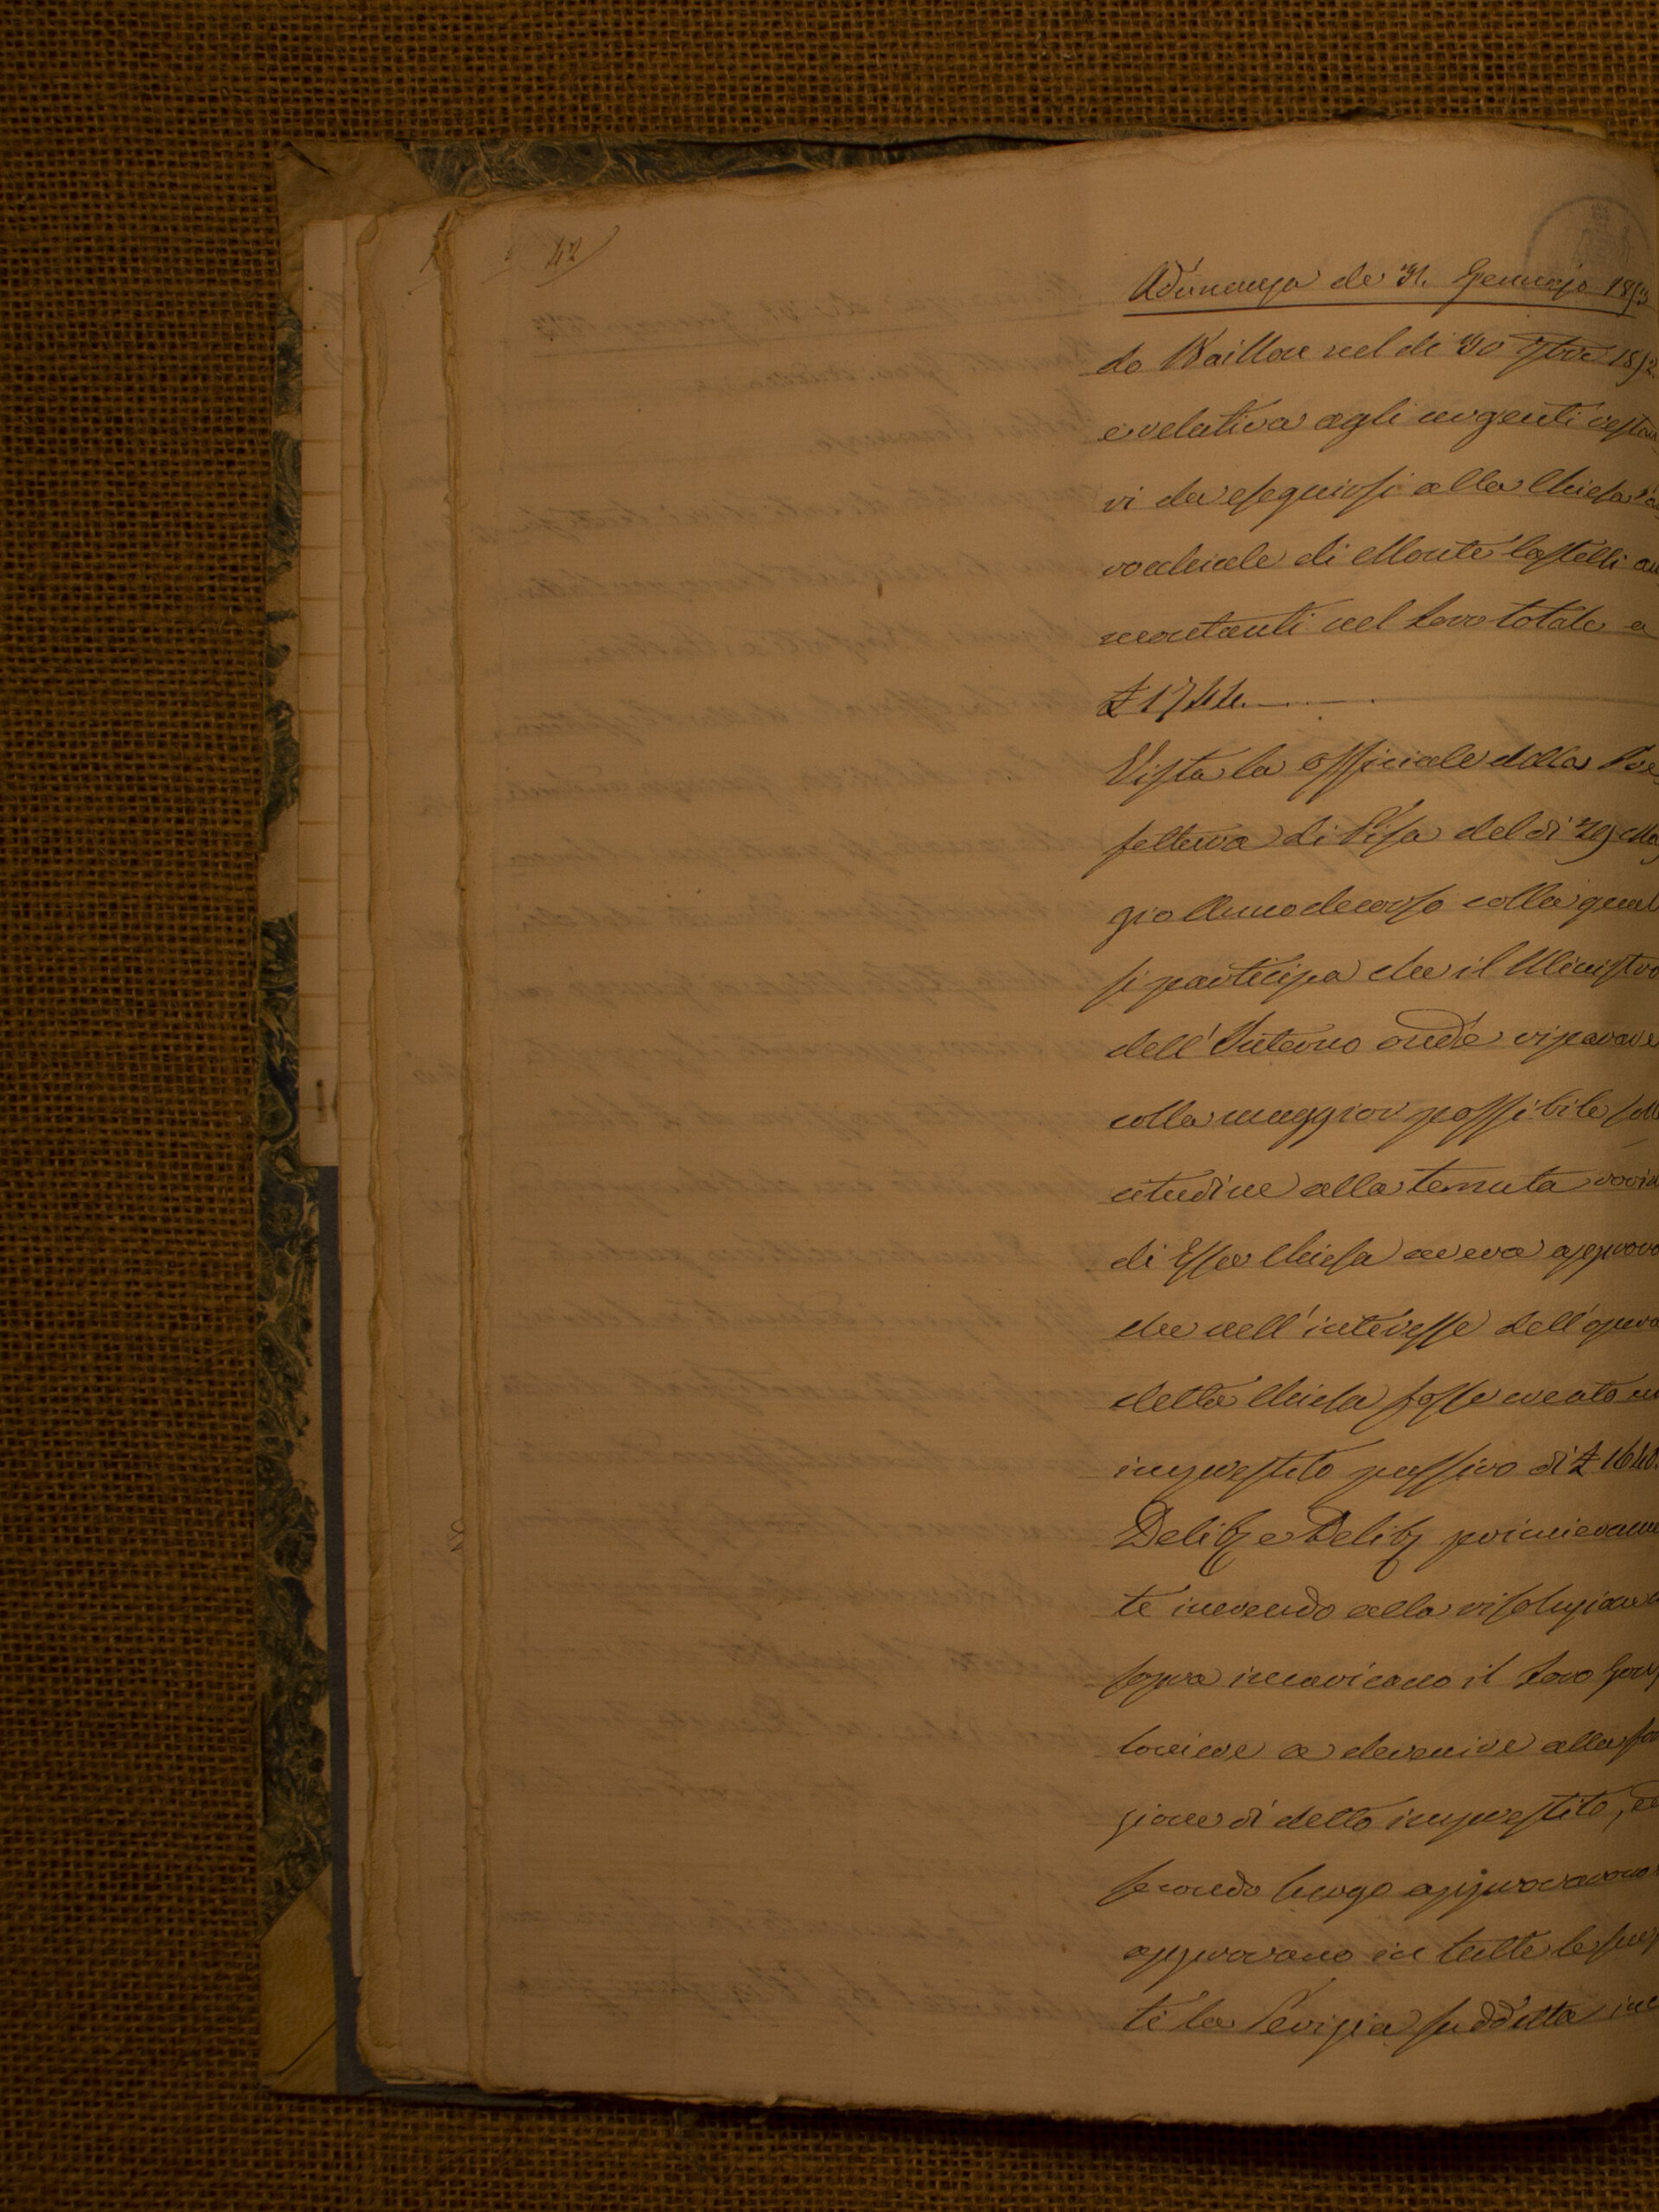 42
Adunanza de 31. Gennajo 1853
do Baillou nel di 30 7bre 1852
e relativa agli urgenti restau
vi da eseguirsi alla Chiesa
rocchiale di Monte Castelli am
montanti nel loro totale a
£ 1744.
Vista la officiale della Pre
fettura di Pisa del di 29 Mag
gio anno decorso colla qual
si partecipa che il Ministro
dell' Interno onde riparare
colla maggior possibile soll
citudine alla temuta rovin
di Essa Chiesa aveva approva
che nell' interesse dell' opera
detta Chiesa fosse creato un
imprestito passivo di £ 1640.
Delib e Delib primieramen
te inerendo alla risoluzione
sopra incaricano il loro Gonf
loniere a devenire alla
zione di detto imprestito, ed
secondo luogo approvarono
approvano in tutte le sue
ti la Perizia suddetta inc